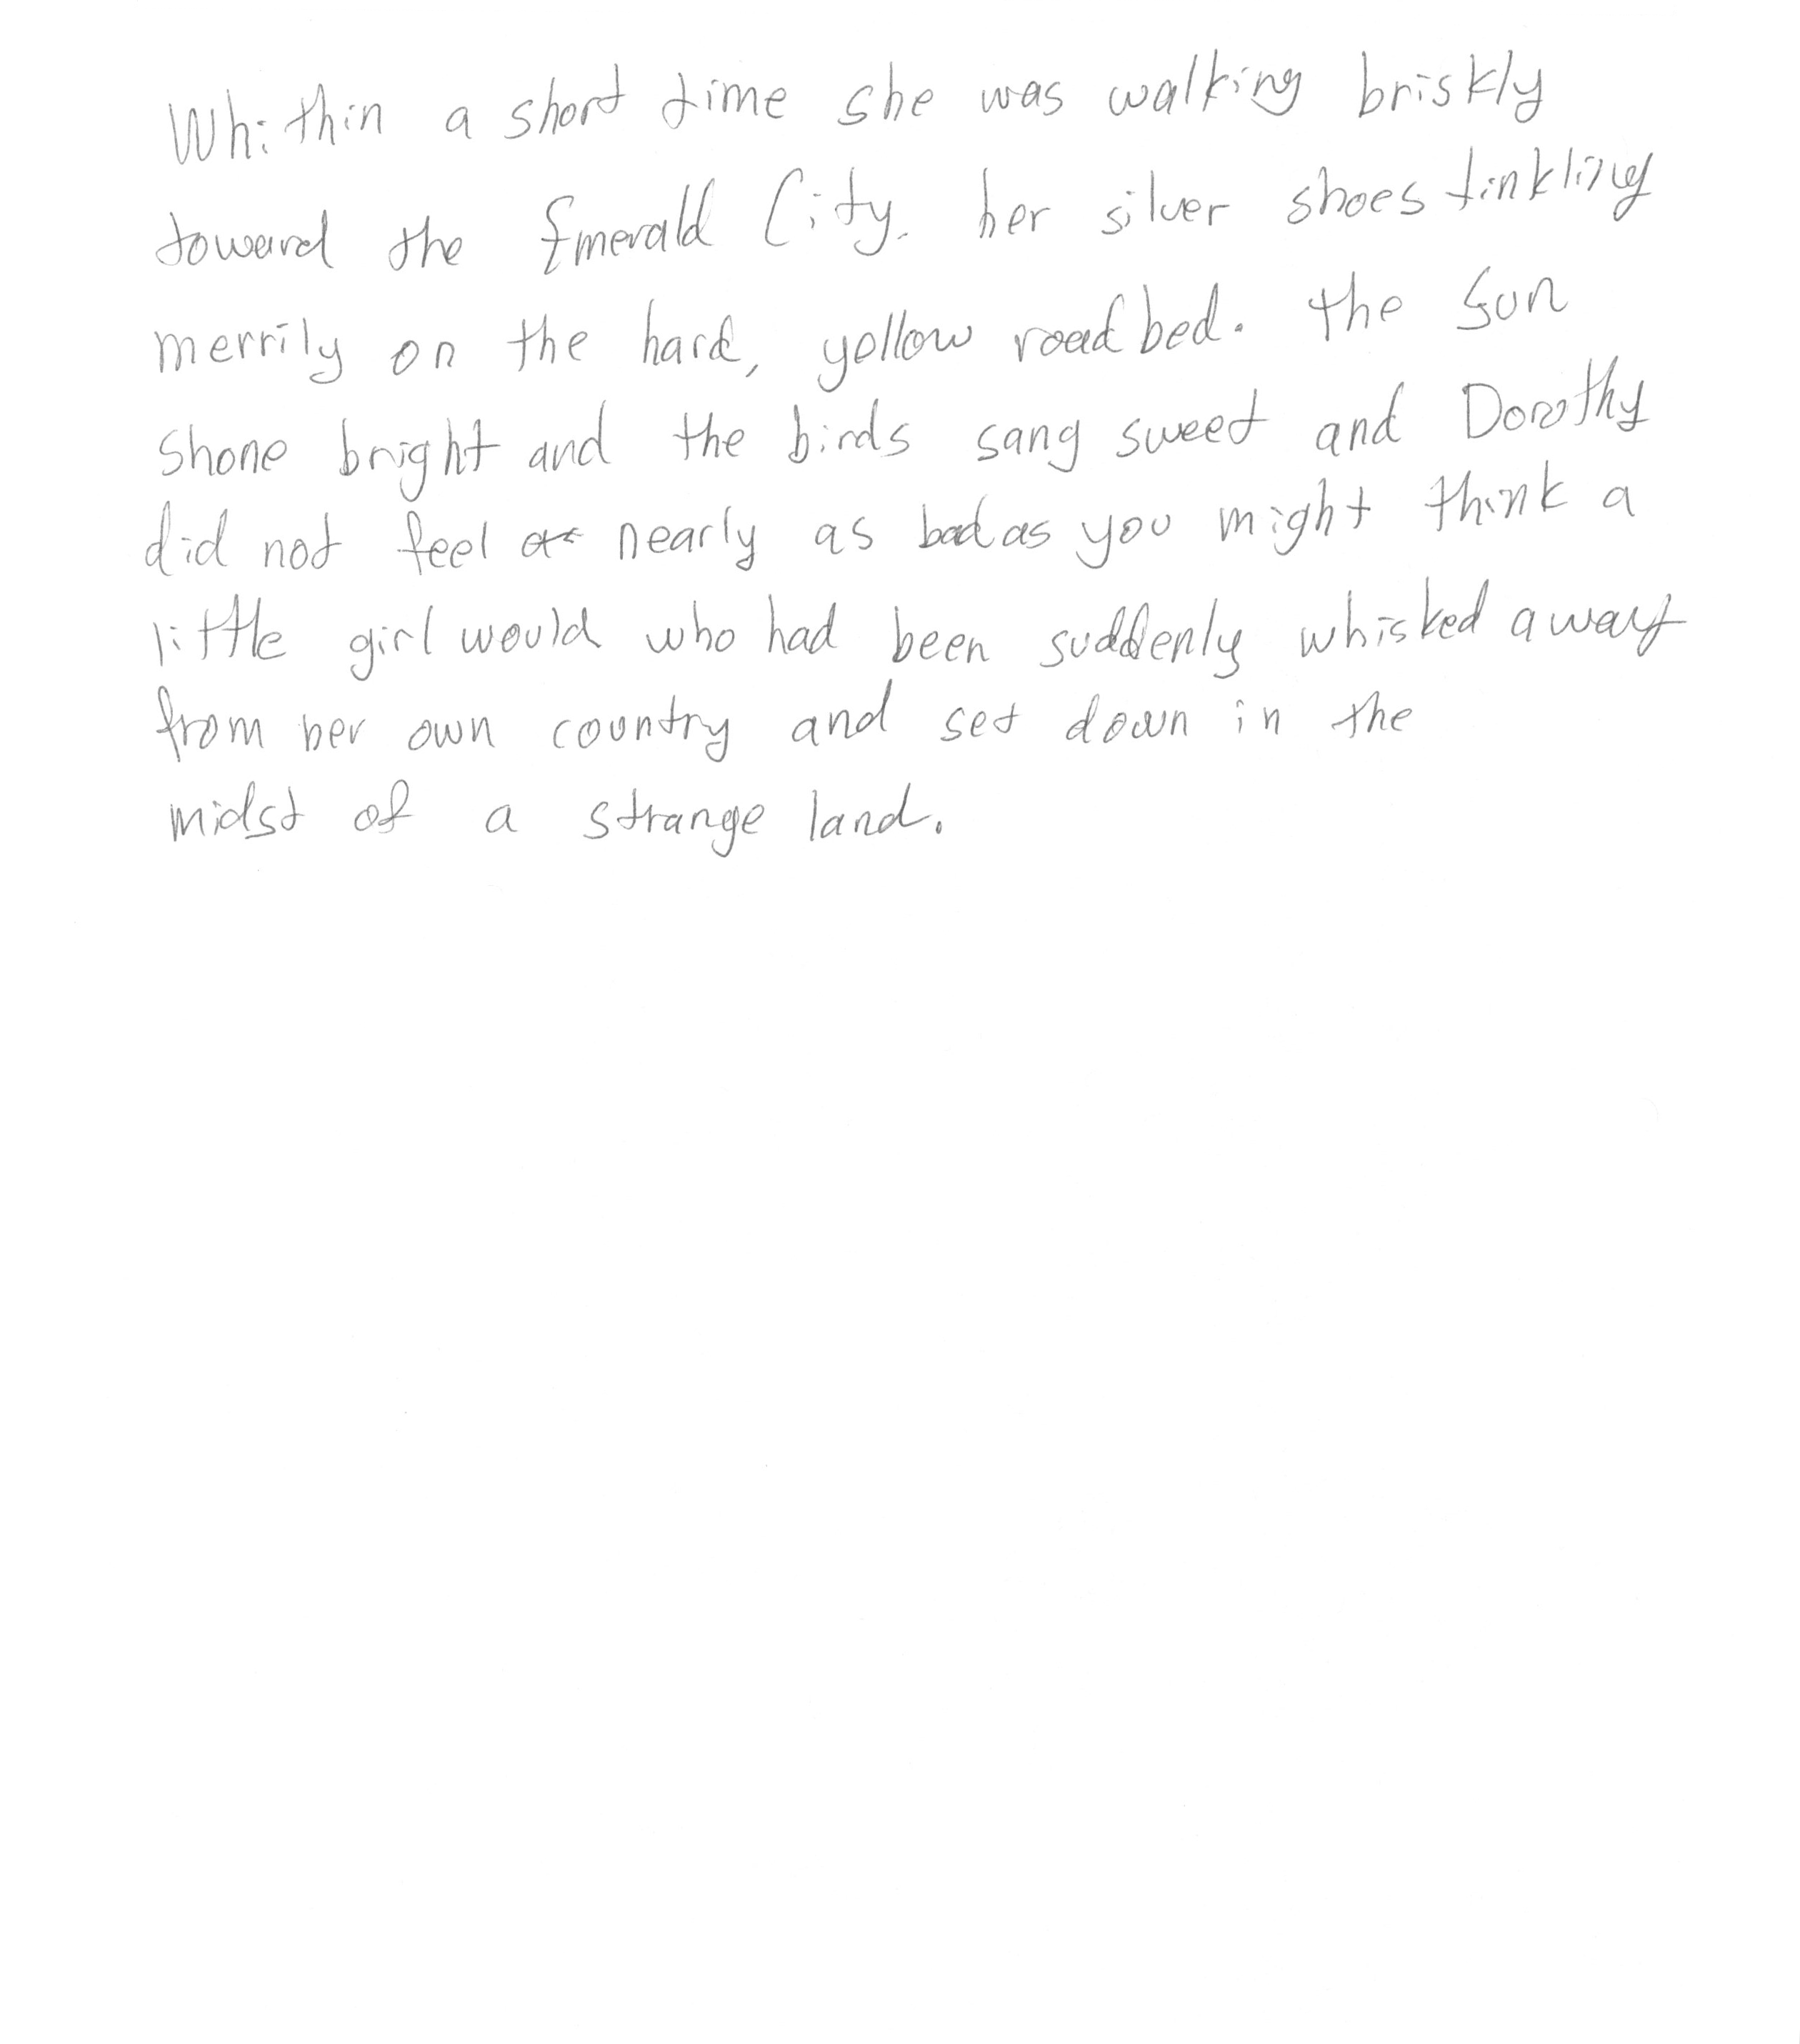 Whithin a short time she was walking briskly
toward the Emerald City. her silver shoes tinkling
merrily on the hard, yellow roadbed. the sun
shone bright and the birds sang sweet and Dorothy
did not feel nearly as bad as you might think a
little girl would who had been suddenly whisked away
from her own country and set down in the
midst of a strange land.